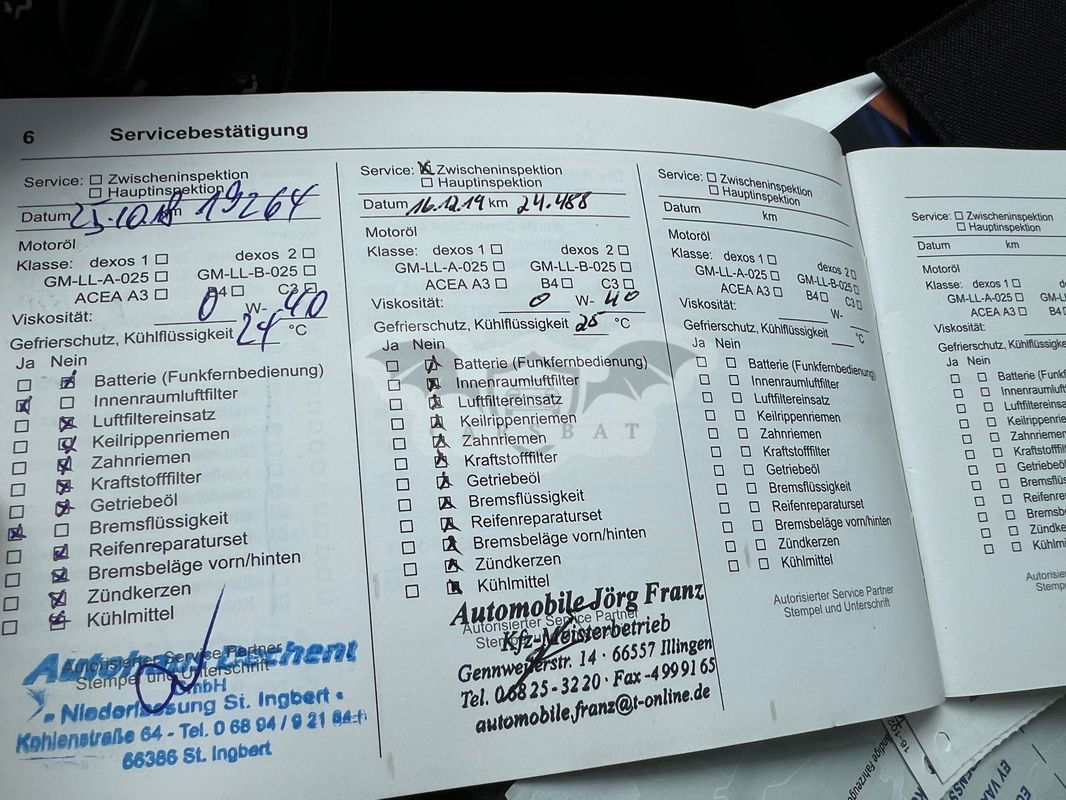 6 Servicebestätigung
Service: Zwischeninspektion
Hauptinspektion
Datum 25.10.18 km 19264
Motoröl
Klasse: dexos 1 dexos 2
GM-LL-A-025 GM-LL-B-025
ACEA A3 B4 C3
Viskosität: 0 W- 40
Gefrierschutz, Kühlflüssigkeit 24 °C
Ja Nein
Batterie (Funkfernbedienung)
Innenraumluftfilter
Luftfiltereinsatz
Keilrippenriemen
Zahnriemen
Kraftstofffilter
Getriebeöl
Bremsflüssigkeit
Reifenreparaturset
Bremsbeläge vorn/hinten
Zündkerzen
Kühlmittel
Autorisierter Service Partner
Stempel und Unterschrift
GmbH
- Niederlassung St. Ingbert -
Kohlenstraße 64 - Tel. 0 68 94 / 9 21
66386 St. Ingbert
Service: Zwischeninspektion
Hauptinspektion
Datum 16.12.19 km 24.488
Motoröl
Klasse: dexos 1 dexos 2
GM-LL-A-025 GM-LL-B-025
ACEA A3 B4 C3
Viskosität: 0 W- 40
Gefrierschutz, Kühlflüssigkeit 25 °C
Ja Nein
Batterie (Funkfernbedienung)
Innenraumluftfilter
Luftfiltereinsatz
Keilrippenriemen
Zahnriemen
Kraftstofffilter
Getriebeöl
Bremsflüssigkeit
Reifenreparaturset
Bremsbeläge vorn/hinten
Zündkerzen
Kühlmittel
Autorisierter Service Partner
Automobile Jörg Franz
Kfz-Meisterbetrieb
Gennweilerstr. 14 · 66557 Illingen
Tel. 06825-3220 · Fax -4999165
automobile.franz@t-online.de
Service: Zwischeninspektion
Hauptinspektion
Datum km
Motoröl
Klasse: dexos 1 dexos 2
GM-LL-A-025 GM-LL-B-025
ACEA A3 B4 C3
Viskosität: W-
Gefrierschutz, Kühlflüssigkeit °C
Ja Nein
Batterie (Funkfernbedienung)
Innenraumluftfilter
Luftfiltereinsatz
Keilrippenriemen
Zahnriemen
Kraftstofffilter
Getriebeöl
Bremsflüssigkeit
Reifenreparaturset
Bremsbeläge vorn/hinten
Zündkerzen
Kühlmittel
Autorisierter Service Partner
Stempel und Unterschrift
Service: Zwischeninspektion
Hauptinspektion
Datum km
Motoröl
Klasse: dexos 1
GM-LL-A-025
ACEA A3
Viskosität:
Gefrierschutz, Kühlflüssigke
Ja Nein
Batterie (Funkfernb
Innenraumluft
Luftfiltereinsa
Keilrippenrie
Zahnriemen
Kraftstofffil
Getriebeöl
Bremsflüs
Reifenre
Bremsb
Zündke
Kühlmi
Autorisier
Stemp
CARSBAT